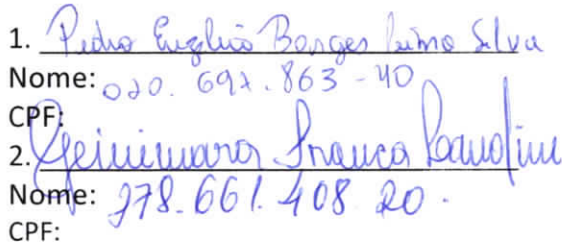 1. Pedro Borges Lima Silva
Nome: 020. 697. 863 - 40
CPF:
2. Geinimara Franca
Nome: 278. 661. 408. 20.
CPF: